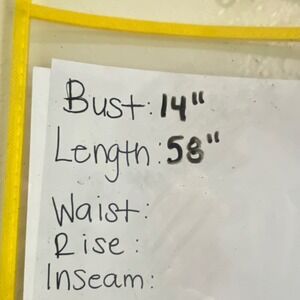 Bust: 14"
Length: 58"
Waist:
Rise:
Inseam: